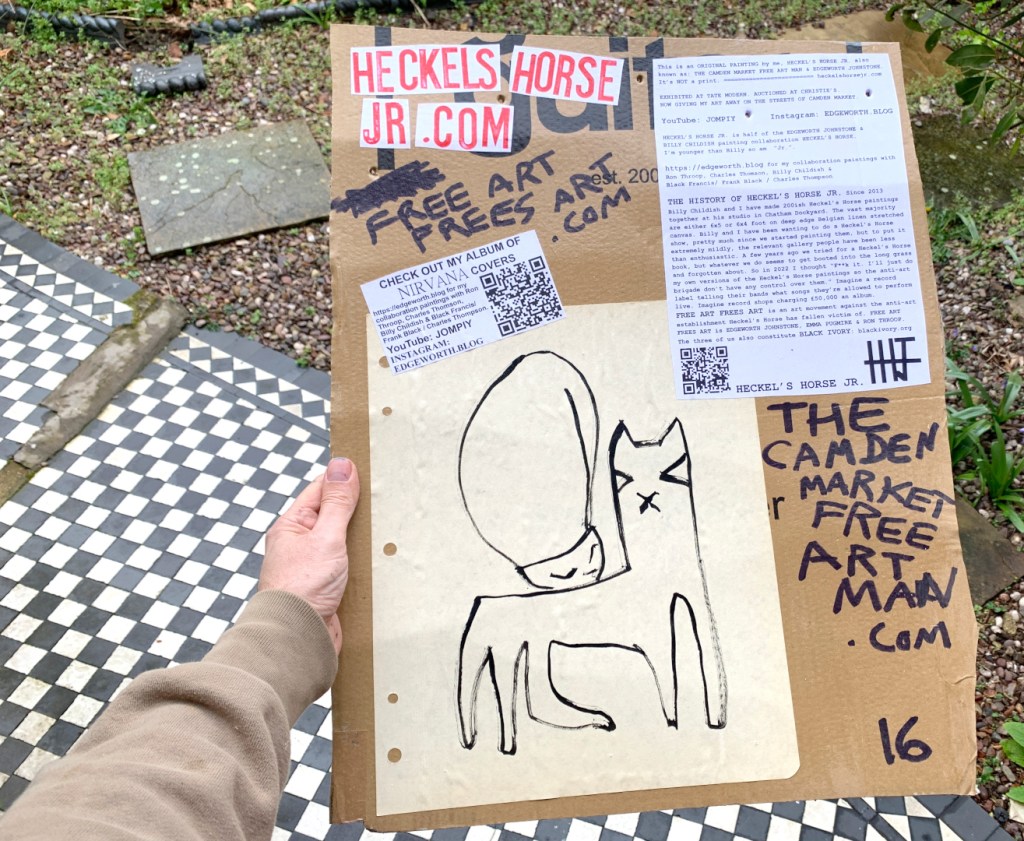 HECKELS HORSE
JR .COM
est. 200
FREE ART
FREES ART
.COM
CHECK OUT MY ALBUM OF
NIRVANA COVERS
https://edgeworth.blog for my
collaboration paintings with Ron
Throop, Charles Thomson,
Billy Childish & Black Francis/
Frank Black / Charles Thompson.
YouTube: JOMPIY
INSTAGRAM:
EDGEWORTH.BLOG
This is an ORIGINAL PAINTING by me, HECKEL'S HORSE JR. also
known as: THE CAMDEN MARKET FREE ART MAN & EDGEWORTH JOHNSTONE.
It's NOT a print. heckelshorsejr.com
EXHIBITED AT TATE MODERN. AUCTIONED AT CHRISTIE'S
NOW GIVING MY ART AWAY ON THE STREETS OF CAMDEN MARKET
YouTube: JOMPIY Instagram: EDGEWORTH.BLOG
HECKEL'S HORSE JR. is half of the EDGEWORTH JOHNSTONE &
BILLY CHILDISH painting collaboration HECKEL'S HORSE.
I'm younger than Billy so am "Jr.".
https://edgeworth.blog for my collaboration paintings with
Ron Throop, Charles Thomson, Billy Childish &
Black Francis/ Frank Black / Charles Thompson
THE HISTORY OF HECKEL'S HORSE JR. Since 2013
Billy Childish and I have made 200ish Heckel's Horse paintings
together at his studio in Chatham Dockyard. The vast majority
are either 6x5 or 6x4 foot on deep edge Belgian linen stretched
canvas. Billy and I have been wanting to do a Heckel's Horse
show, pretty much since we started painting them, but to put it
extremely mildly, the relevant gallery people have been less
than enthusiastic. A few years ago we tried for a Heckel's Horse
book, but whatever we do seems to get booted into the long grass
and forgotten about. So in 2022 I thought "F**k it. I'll just do
my own versions of the Heckel's Horse paintings so the anti-art
brigade don't have any control over them." Imagine a record
label telling their bands what songs they're allowed to perform
live. Imagine record shops charging £50,000 an album.
FREE ART FREES ART is an art movement against the anti-art
establishment Heckel's Horse has fallen victim of. FREE ART
FREES ART is EDGEWORTH JOHNSTONE, EMMA PUGMIRE & RON THROOP.
The three of us also constitute BLACK IVORY: blackivory.org
HECKEL'S HORSE JR.
THE
CAMDEN
MARKET
FREE
ART
MAN
.COM
16